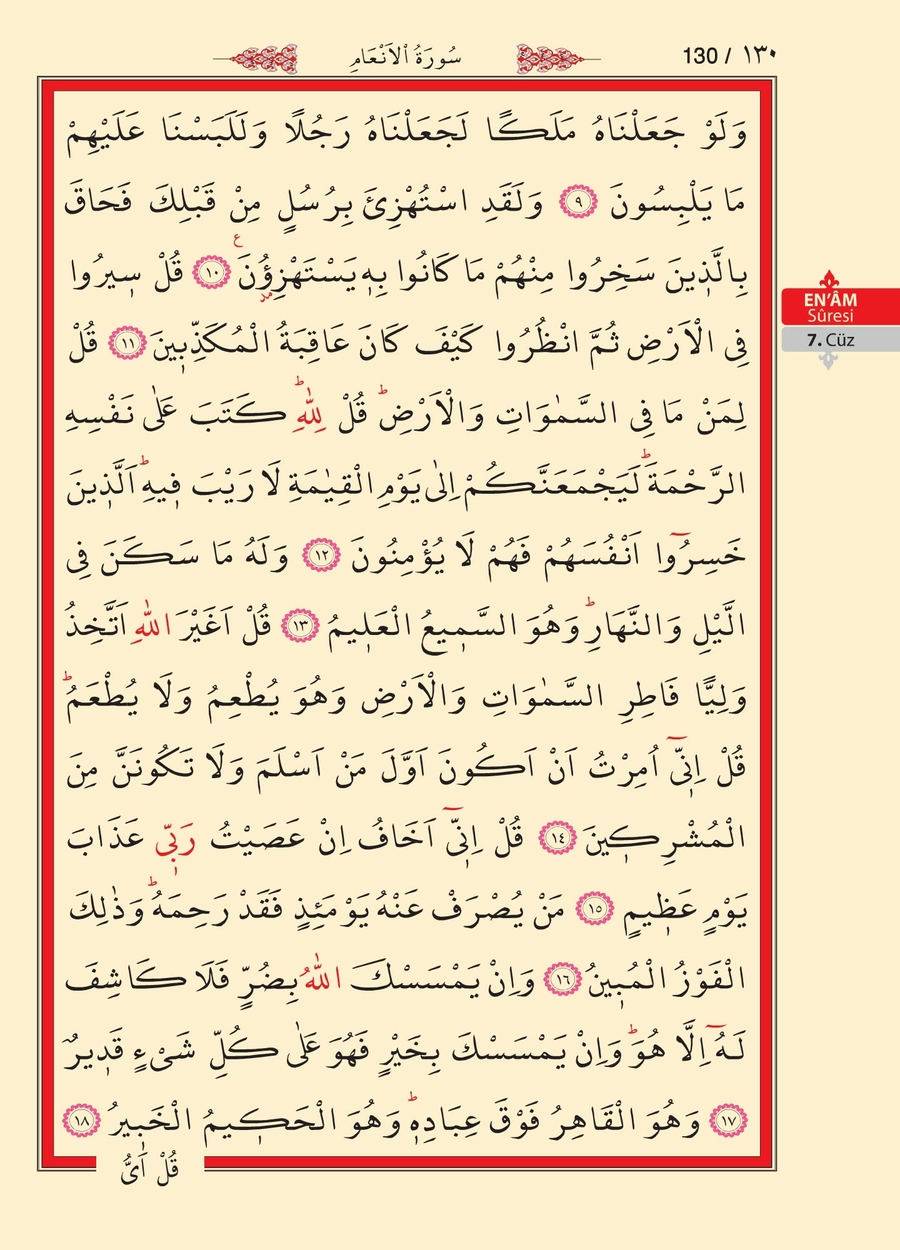 130 / ١٣٠
سُورَةُ الْاَنْعَامِ
وَلَوْ جَعَلْنَاهُ مَلَكًا لَجَعَلْنَاهُ رَجُلًا وَلَلَبَسْنَا عَلَيْهِمْ
مَا يَلْبِسُونَ ﴿٩﴾ وَلَقَدِ اسْتُهْزِئَ بِرُسُلٍ مِنْ قَبْلِكَ فَحَاقَ
بِالَّذ۪ينَ سَخِرُوا مِنْهُمْ مَا كَانُوا بِه۪ يَسْتَهْزِؤُ۫نَ ﴿١٠﴾ قُلْ س۪يرُوا
فِي الْاَرْضِ ثُمَّ انْظُرُوا كَيْفَ كَانَ عَاقِبَةُ الْمُكَذِّب۪ينَ ﴿١١﴾ قُلْ
لِمَنْ مَا فِي السَّمٰوَاتِ وَالْاَرْضِۜ قُلْ لِلّٰهِۜ كَتَبَ عَلٰى نَفْسِهِ
الرَّحْمَةَۜ لَيَجْمَعَنَّكُمْ اِلٰى يَوْمِ الْقِيٰمَةِ لَا رَيْبَ ف۪يهِۜ اَلَّذ۪ينَ
خَسِرُٓوا اَنْفُسَهُمْ فَهُمْ لَا يُؤْمِنُونَ ﴿١٢﴾ وَلَهُ مَا سَكَنَ فِي
الَّيْلِ وَالنَّهَارِۜ وَهُوَ السَّم۪يعُ الْعَل۪يمُ ﴿١٣﴾ قُلْ اَغَيْرَ اللّٰهِ اَتَّخِذُ
وَلِيًّا فَاطِرِ السَّمٰوَاتِ وَالْاَرْضِ وَهُوَ يُطْعِمُ وَلَا يُطْعَمُۜ
قُلْ اِنّ۪ٓي اُمِرْتُ اَنْ اَكُونَ اَوَّلَ مَنْ اَسْلَمَ وَلَا تَكُونَنَّ مِنَ
الْمُشْرِك۪ينَ ﴿١٤﴾ قُلْ اِنّ۪ٓي اَخَافُ اِنْ عَصَيْتُ رَبّ۪ي عَذَابَ
يَوْمٍ عَظ۪يمٍ ﴿١٥﴾ مَنْ يُصْرَفْ عَنْهُ يَوْمَئِذٍ فَقَدْ رَحِمَهُۜ وَذٰلِكَ
الْفَوْزُ الْمُب۪ينُ ﴿١٦﴾ وَاِنْ يَمْسَسْكَ اللّٰهُ بِضُرٍّ فَلَا كَاشِفَ
لَهُٓ اِلَّا هُوَۜ وَاِنْ يَمْسَسْكَ بِخَيْرٍ فَهُوَ عَلٰى كُلِّ شَيْءٍ قَد۪يرٌ
﴿١٧﴾ وَهُوَ الْقَاهِرُ فَوْقَ عِبَادِه۪ۜ وَهُوَ الْحَك۪يمُ الْخَب۪يرُ ﴿١٨﴾
قُلْ اَيُّ
EN'ÂM
Sûresi
7. Cüz